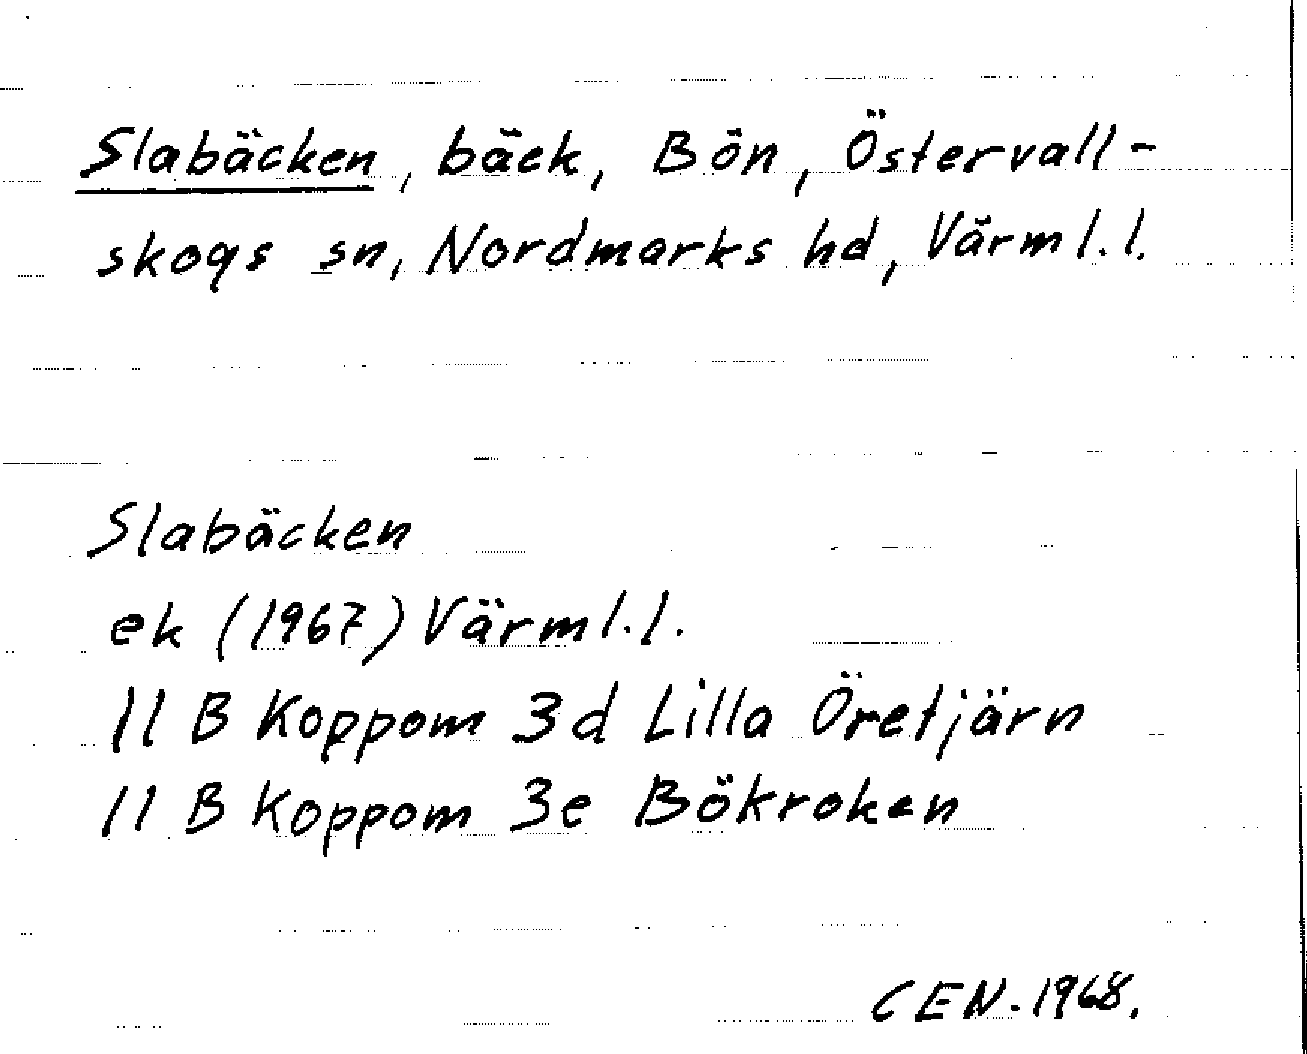 Slabäcken, bäck, Bön, Östervall-
skogs sn, Nordmarks hd, Värml.l.
Slabäcken
ek (1967) Värml.l.
11 B Koppom 3d Lilla Öretjärn
11 B Koppom 3e Bökroken
CEN. 1968.